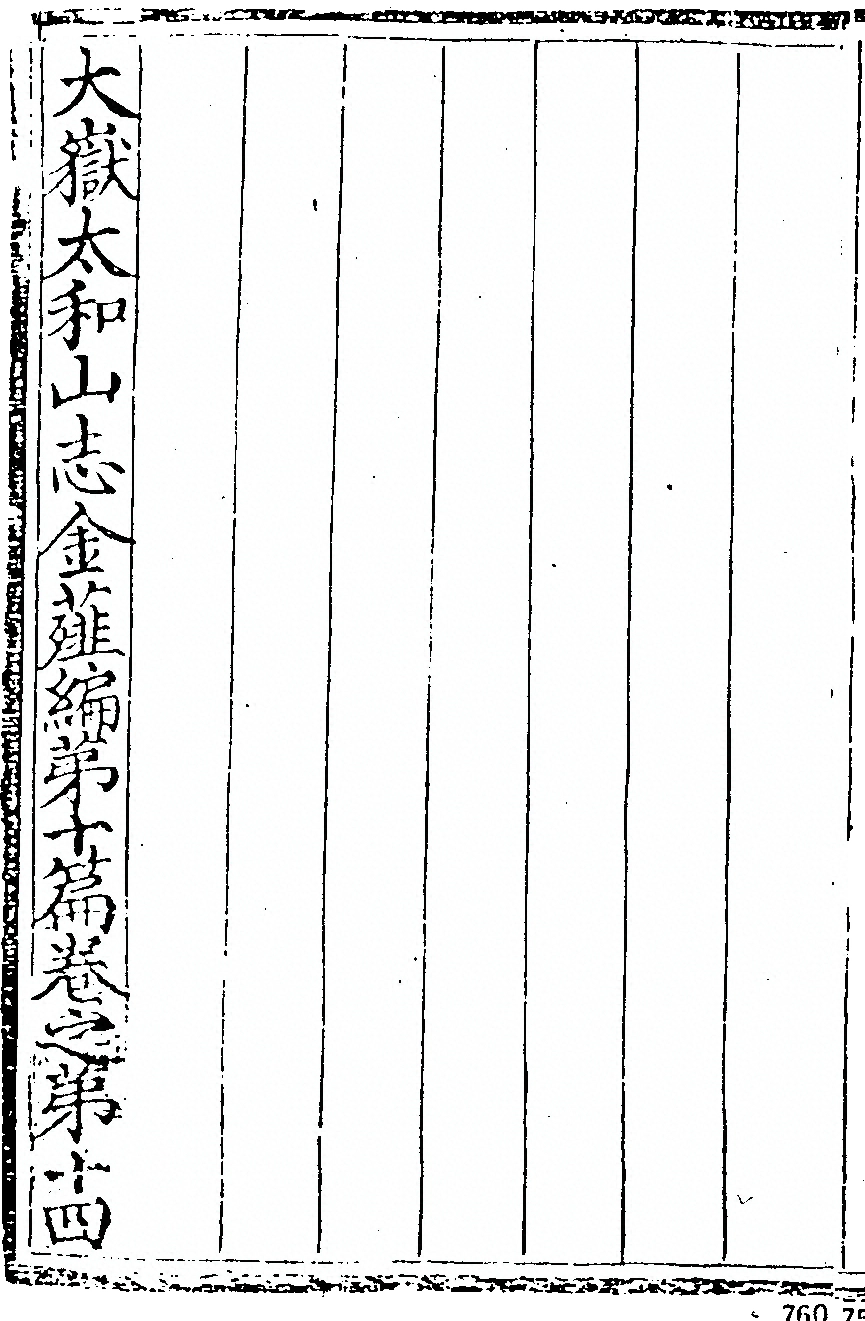 大嶽太和山志金薤編第十篇卷之第十四
760 75